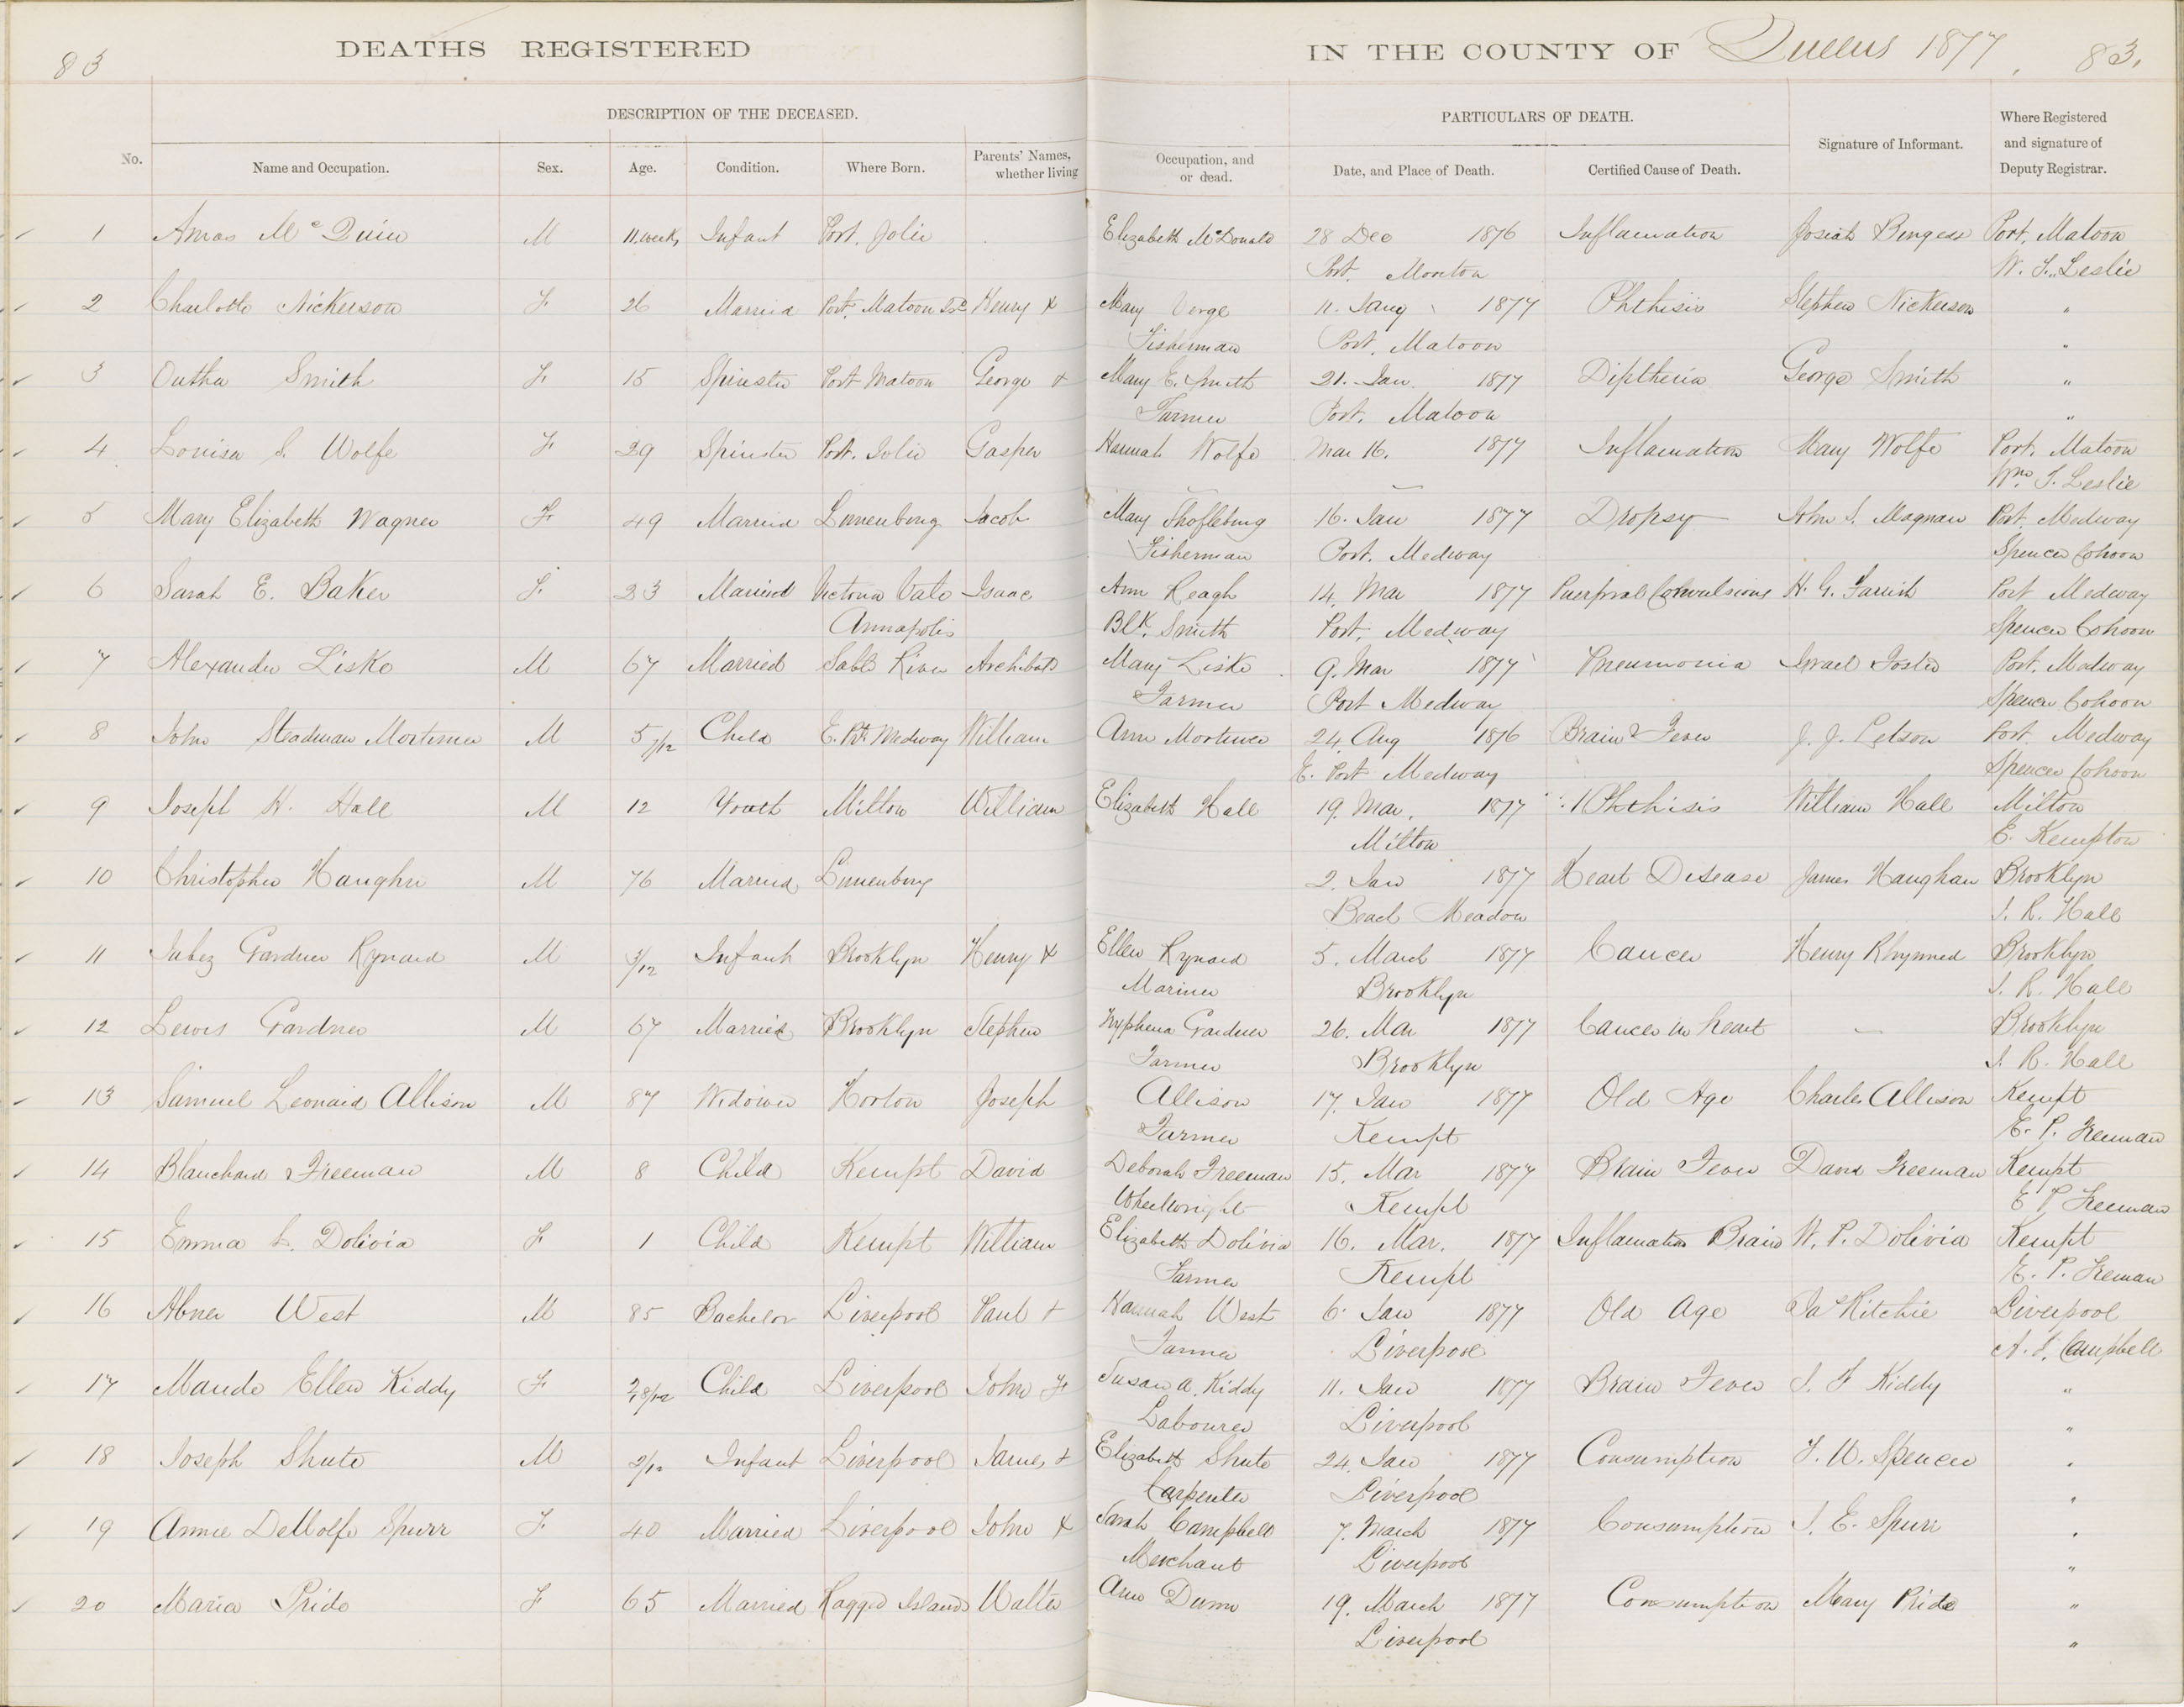 83 DEATHS REGISTERED IN THE COUNTY OF Queens 1877. 83.
DESCRIPTION OF THE DECEASED. PARTICULARS OF DEATH. Where Registered
No. Name and Occupation. Sex. Age. Condition. Where Born. Parents' Names, whether living Occupation, and or dead. Date, and Place of Death. Certified Cause of Death. Signature of Informant. and signature of Deputy Registrar.
1 Amos McQuin M 11 weeks Infant Port. Jolie Elizabeth McDonald 28 Dec 1876 Inflamation Josiah Burgess Port. Matoon
Port. Moreton W. T. Leslie
2 Charlotte Nickerson F 26 Married Port. Matoon Henry & Mary Verge 11. Jany 1877 Phthisis Stephen Nickerson "
Fisherman Port. Matoon "
3 Smith F 15 Spinster Port Matoon George & Mary E. Smith 21. Jan. 1877 Diptheria George Smith "
Farmer Port. Matoon "
4 Louisa S. Wolfe F 29 Spinster Port. Jolie Gasper Hannah Wolfe Mar 16. 1877 Inflamation Mary Wolfe Port. Matoon
Wm. T. Leslie
5 Mary Elizabeth Wagner F 49 Married Lunenburg Jacob Mary 16. Jan 1877 Dropsy John S. Magnan Port. Medway
Fisherman Port. Medway Spencer Cohoon
6 Sarah E. Baker F 23 Married Victoria Vale Isaac Ann Reagh 14. Mar 1877 Puerpral Convulsions H. G. Farish Port Medway
Annapolis Blk. Smith Port. Medway Spencer Cohoon
7 Alexander Lisko M 67 Married Sable River Archibald Mary Lisko 9. Mar 1877 Pneumonia Israel Foster Port. Medway
Farmer Port Medway Spencer Cohoon
8 John Steadman Mortimer M 5 7/12 Child E. Pt. Medway William Ann Mortimer 24. Aug 1876 Brain Fever J. J. Letson Port. Medway
E. Port Medway Spencer Cohoon
9 Joseph H. Hall M 12 Youth Milton William Elizabeth Hall 19. Mar. 1877 Phthisis William Hall Milton
Milton E. Kempton
10 Christopher Haughn M 76 Married Lunenburg 2. Jan 1877 Heart Disease James Haughan Brooklyn
Beach Meadow J. R. Hall
11 Jabez Gardner Rynard M 3/12 Infant Brooklyn Henry & Ellen Rynard 5. March 1877 Cancer Henry Rhynned Brooklyn
Mariner Brooklyn J. R. Hall
12 Lewis Gardner M 67 Married Brooklyn Stephen Tryphena Gardner 26. Mar 1877 Cancer in heart — Brooklyn
Farmer Brooklyn J. R. Hall
13 Samuel Leonard Allison M 87 Widower Horton Joseph Allison 17. Jan 1877 Old Age Charles Allison Kempt
Farmer Kempt E. P. Freeman
14 Blanchard Freeman M 8 Child Kempt David Deborah Freeman 15. Mar 1877 Brain Fever David Freeman Kempt
Wheelwright Kempt E P Freeman
15 Emma L. Dolivia F 1 Child Kempt William Elizabeth Dolivia 16. Mar. 1877 Inflamation Brain W. P. Dolivia Kempt
Farmer Kempt E. P. Freeman
16 Abner West M 85 Bachelor Liverpool Paul & Hannah West 6. Jan 1877 Old Age Jas Ritchie Liverpool
Farmer Liverpool A. F. Campbell
17 Maude Ellen Kiddy F 2 8/12 Child Liverpool John F Susan A. Kiddy 11. Jan 1877 Brain Fever J. F Kiddy "
Labourer Liverpool "
18 Joseph Shute M 2/12 Infant Liverpool James & Elizabeth Shute 24. Jan 1877 Consumption T. W. Spencer "
Carpenter Liverpool "
19 Annie DeWolfe Spurr F 40 Married Liverpool John & Sarah Campbell 7. March 1877 Consumption J. E. Spurr "
Merchant Liverpool "
20 Maria Pride F 65 Married Ragged Islands Walter Ann Dumn 19. March 1877 Consumption Mary Pride "
Liverpool "